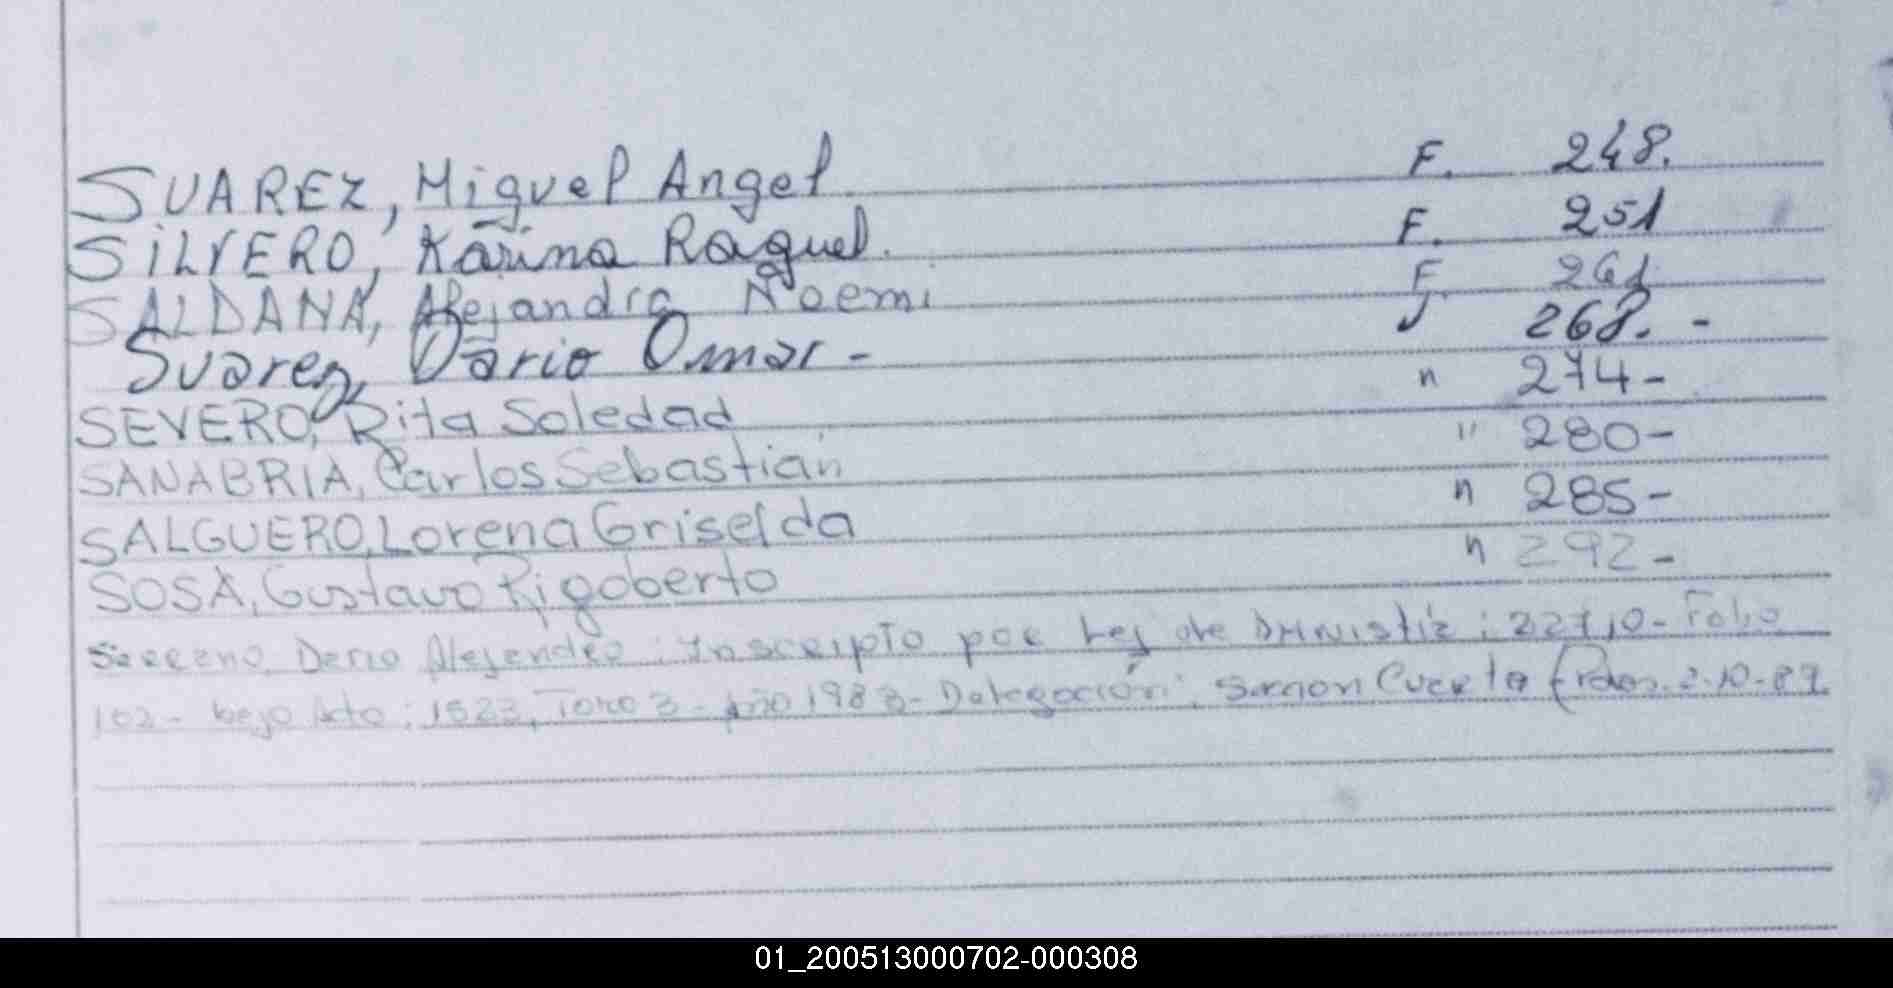 SUAREZ, Miguel Angel F. 248.
SILVERO, Karina Raquel. F. 251
SALDANA, Alejandra Noemi F. 261
Suarez, Dario Omar - 268. -
SEVERO, Rita Soledad " 274 -
SANABRIA, Carlos Sebastián " 280 -
SALGUERO, Lorena Griselda " 285 -
SOSA, Gustavo Rigoberto " 292 -
Dario Alejandro: Inscripto por Ley de : Folio
102 - bajo Acta: 1523, Tomo 3 - Año 1983 - Delegación: 2-10-87
01_200513000702-000308